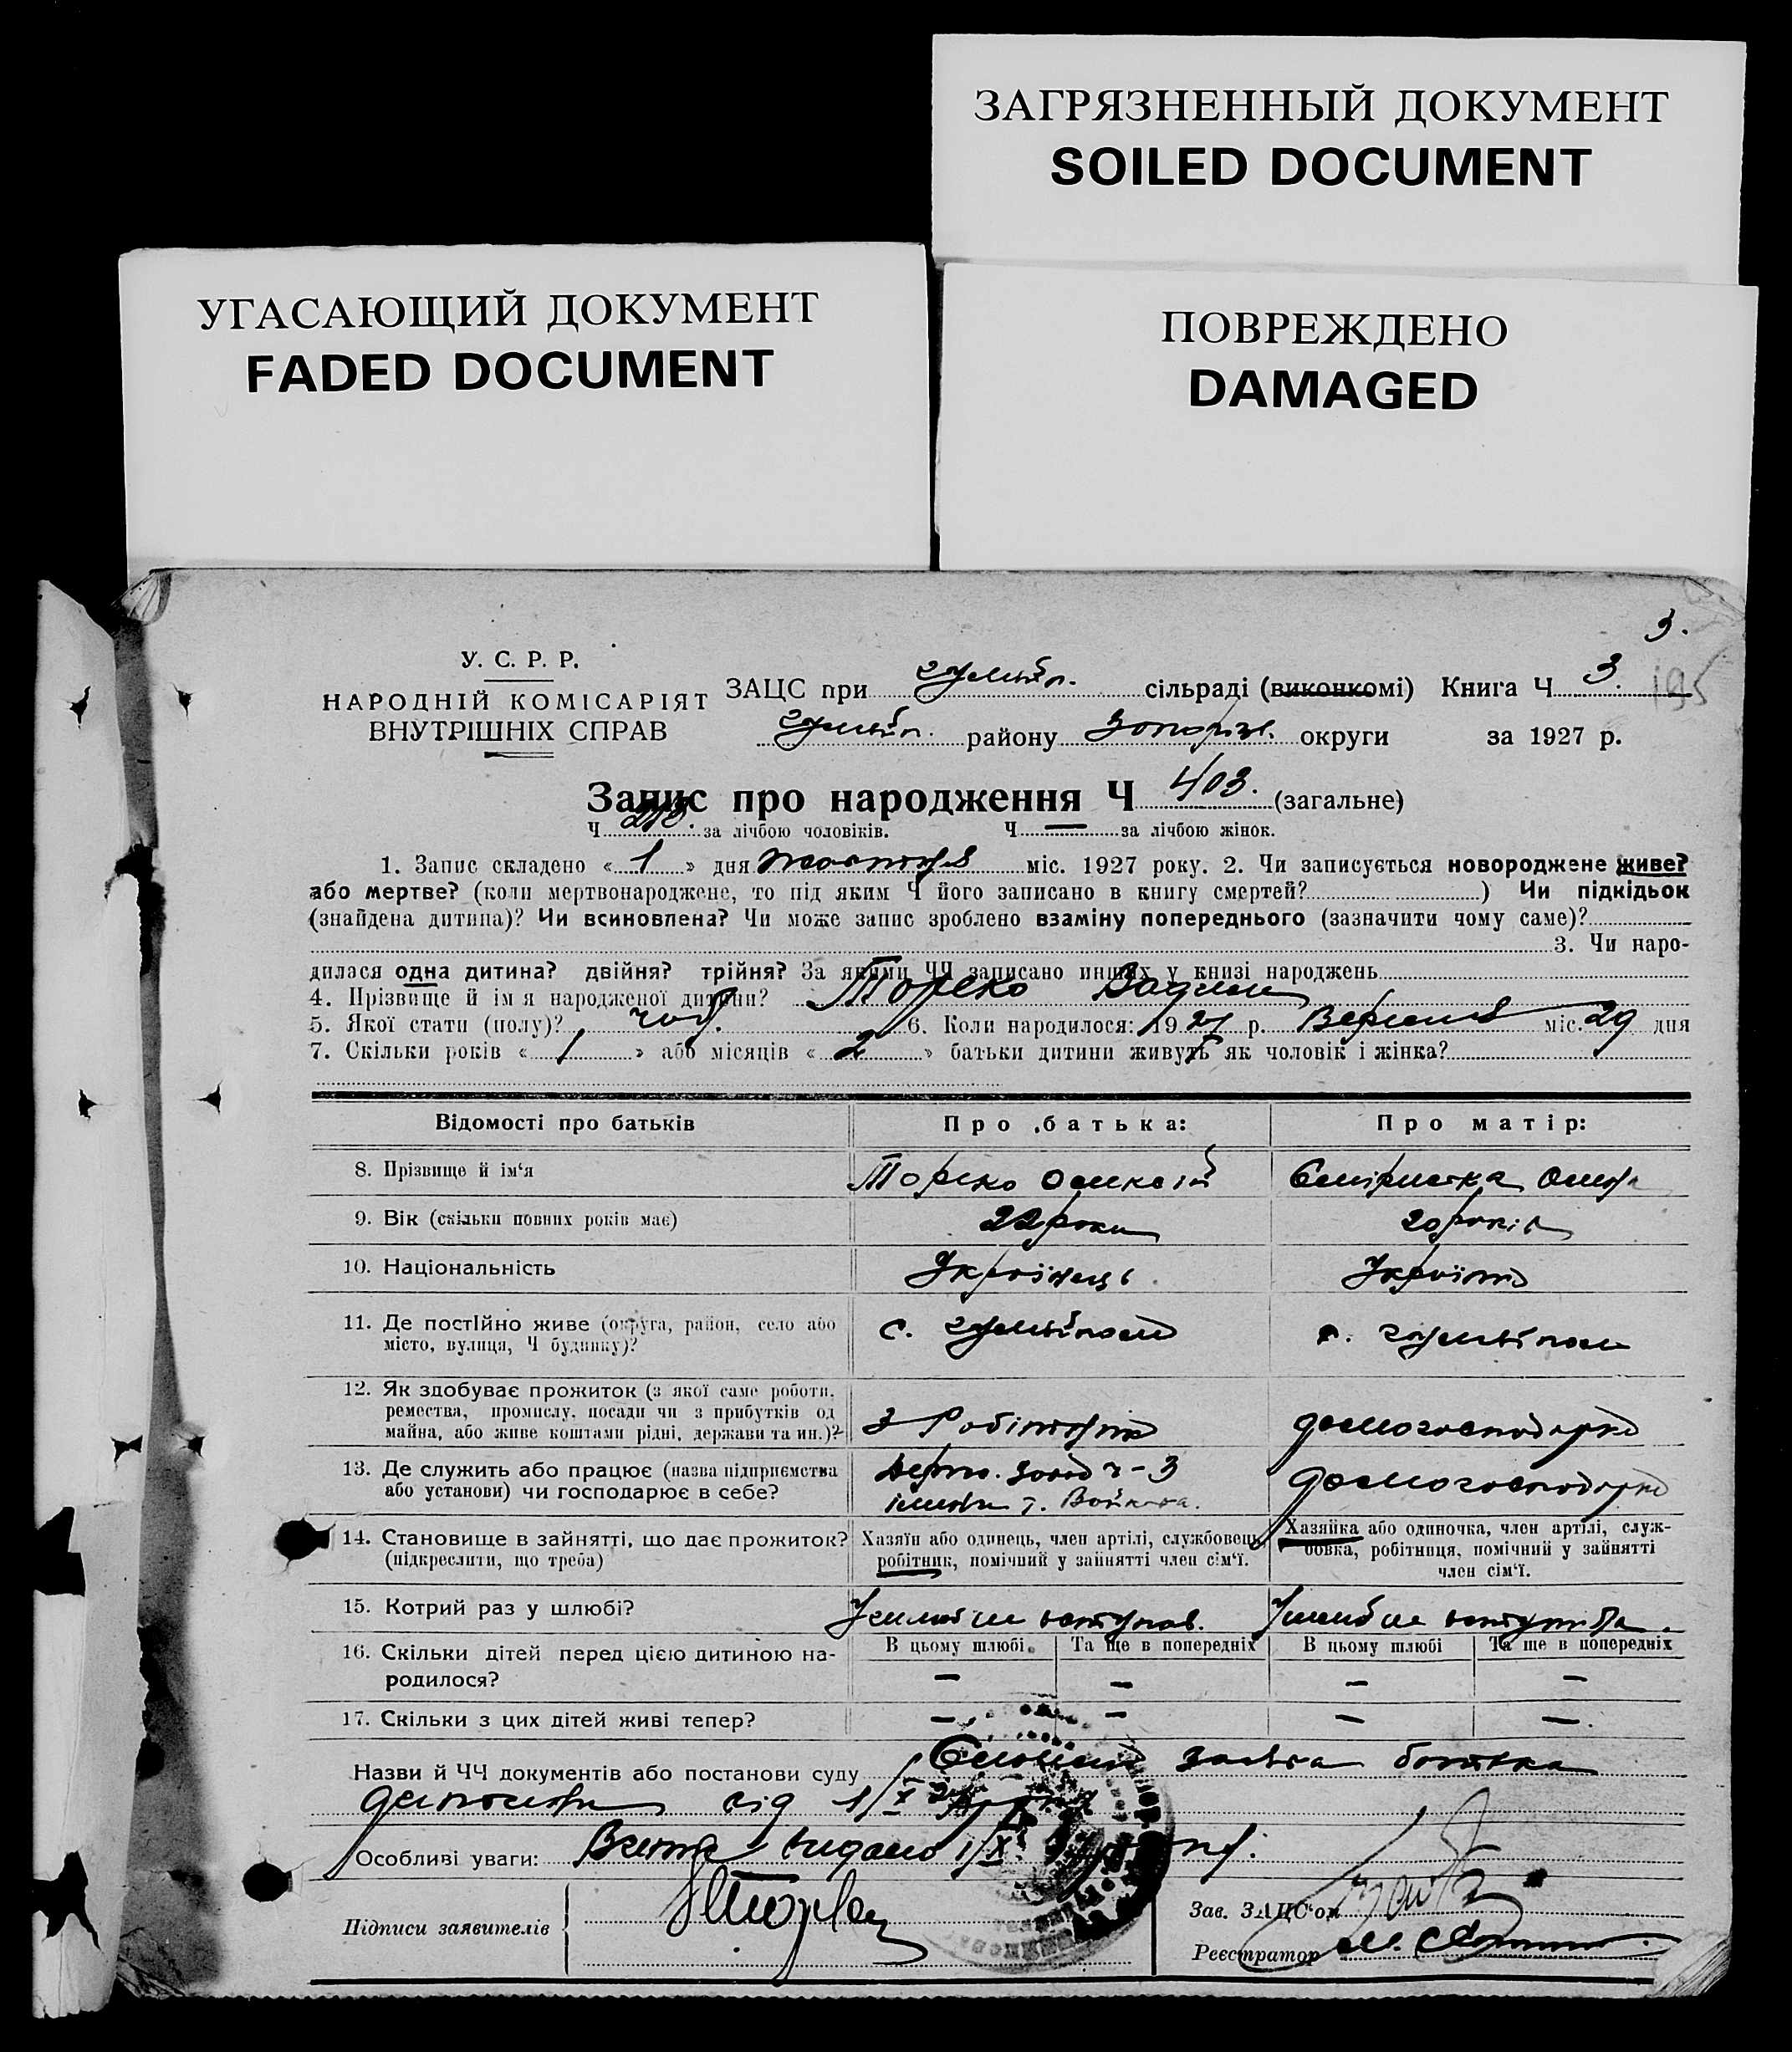 ЗАГРЯЗНЕННЫЙ ДОКУМЕНТ
SOILED DOCUMENT
УГАСАЮЩИЙ ДОКУМЕНТ
FADED DOCUMENT
ПОВРЕЖДЕНО
DAMAGED
3.
У. С. Р. Р.
НАРОДНІЙ КОМІСАРІЯТ
ВНУТРІШНІХ СПРАВ
ЗАЦС при Гуляйп. сільраді (виконкомі) Книга Ч 3. 195
Гуляйп. району Запоріж. округи за 1927 р.
Запис про народження Ч 403. (загальне)
Ч 218. за лічбою чоловіків. Ч — за лічбою жінок.
1. Запис складено « 1 » дня жовтня міс. 1927 року. 2. Чи записується новороджене живе?
або мертве? (коли мертвонароджене, то під яким Ч його записано в книгу смертей? ) Чи підкідьок
(знайдена дитина)? Чи всиновлена? Чи може запис зроблено взаміну попереднього (зазначити чому саме)?
3. Чи наро-
дилася одна дитина? двійня? трійня? За якими ЧЧ записано инших у книзі народжень
4. Прізвище й ім'я народженої дитини? Торяко Вадим
5. Якої стати (полу)? чол. 6. Коли народилося: 1927 р. Вересня міс. 29 дня
7. Скільки років « 1 » або місяців « 2 » батьки дитини живуть як чоловік і жінка?
Відомості про батьків Про батька: Про матір:
8. Прізвище й ім'я Олексій
9. Вік (скільки повних років має) 22 роки 20 років
10. Національність Українець Українка
11. Де постійно живе (округа, район, село або
місто, вулиця, Ч будинку)? с. Гуляйполе с. Гуляйполе
12. Як здобуває прожиток (з якої саме роботи,
ремества, промислу, посади чи з прибутків од
майна, або живе коштами рідні, держави та ин.)? З Робітника домогосподарка
13. Де служить або працює (назва підприємства
або установи) чи господарює в себе? Держ. завод ч-3
імени т. Войкова. домогосподарка
14. Становище в зайнятті, що дає прожиток?
(підкреслити, що треба)
Хазяїн або одинець, член артілі, службовець,
робітник, помічний у зайнятті член сім'ї.
Хазяйка або одиночка, член артілі, служ-
бовка, робітниця, помічний у зайнятті
член сім'ї.
15. Котрий раз у шлюбі? У шлюб не вступав. У шлюб не вступала.
16. Скільки дітей перед цією дитиною на-
родилося?
В цьому шлюбі Та ще в попередніх В цьому шлюбі Та ще в попередніх
— — — —
17. Скільки з цих дітей живі тепер? — — — —
Назви й ЧЧ документів або постанови суду заява батька
від 1/X 27
Особливі уваги: видано 1/X
Підписи заявителів
Зав. ЗАЦС'ом
Реєстратор